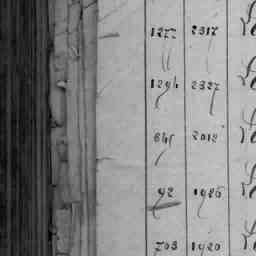 1277 2317
1294 2327
645 2012
92 1926
703 1920